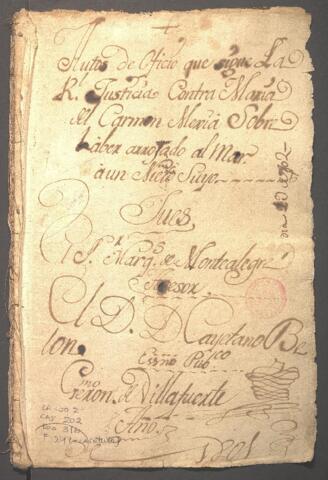 Autos de Oficio que sigue La
R.l Justicia Contra Maria
del Carmen Meria Sobre
haber arrojado al Mar
a un Nieto Suyo
Jues
El S.r Marq.s de Montealegre
Asesor
El D. D. Cayetano Be
lon
Essño Pub.co
Geron.mo de Villafuerte
Año
1801